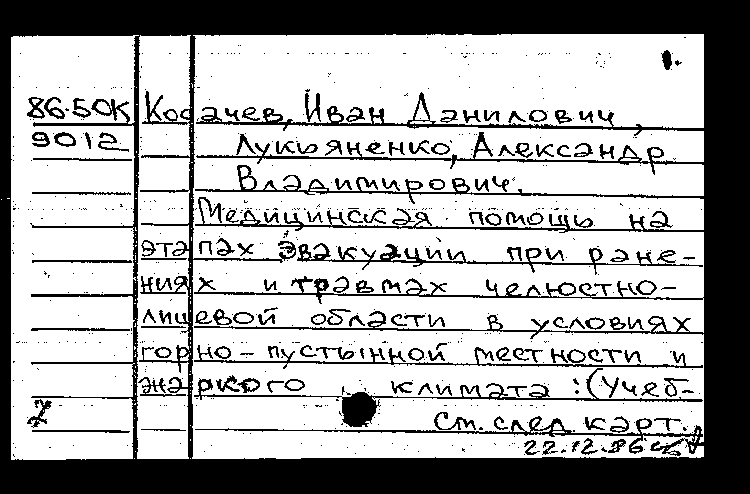 1.
86-50К Косачев, Иван Данилович,
9012 Лукьяненко, Александр
Владимирович.
Медицинская помощь на
этапах эвакуации при ране-
ниях и травмах челюстно-
лицевой области в условиях
горно-пустынной местности и
жаркого климата :(Учеб-
См. след карт.
22.12.86